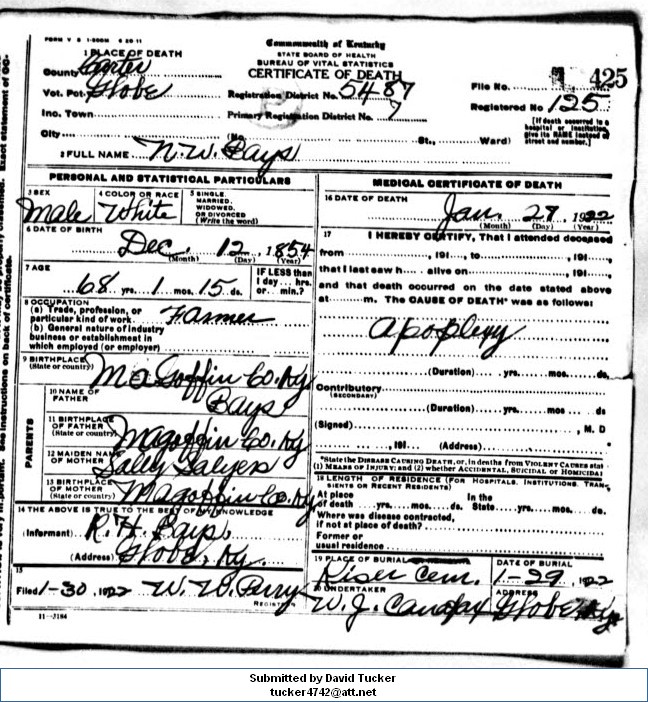 FORM V S 1-500M 6 20-11
Commonwealth of Kentucky
STATE BOARD OF HEALTH
BUREAU OF VITAL STATISTICS
CERTIFICATE OF DEATH
1 PLACE OF DEATH
County Carter
Vot. Pct. Globe
Inc. Town
City (No. St., Ward)
Registration District No. 5487
Primary Registration District No. 7
File No. 425
Registered No 125
[If death occurred in a hospital or institution, give its NAME instead of street and number.]
2 FULL NAME N.W. Bays
PERSONAL AND STATISTICAL PARTICULARS
3 SEX Male
4 COLOR OR RACE White
5 SINGLE, MARRIED, WIDOWED, OR DIVORCED (Write the word)
6 DATE OF BIRTH Dec. 12, 1854
(Month) (Day) (Year)
7 AGE 68 yrs. 1 mos. 15 ds.
IF LESS than 1 day... hrs. or... min.?
8 OCCUPATION
(a) Trade, profession, or particular kind of work. Farmer
(b) General nature of industry business or establishment in which employed (or employer)
9 BIRTHPLACE (State or country) MaGoffin Co. Ky
PARENTS
10 NAME OF FATHER Bays
11 BIRTHPLACE OF FATHER (State or country) Magoffin Co. Ky
12 MAIDEN NAME OF MOTHER Sally Salyers
13 BIRTHPLACE OF MOTHER (State or country) Magoffin Co. Ky
14 THE ABOVE IS TRUE TO THE BEST OF MY KNOWLEDGE
(Informant) R. H. Bays.
(Address) Globe, Ky.
15
Filed 1-30, 1922 W. W. Perry
REGISTRAR
11-3184
MEDICAL CERTIFICATE OF DEATH
16 DATE OF DEATH
Jan. 27 1922
(Month) (Day) (Year)
17 I HEREBY CERTIFY, That I attended deceased
from , 191 , to , 191 ,
that I last saw h alive on , 191 ,
and that death occurred on the date stated above
at m. The CAUSE OF DEATH* was as follows:
Apoplexy
(Duration) yrs. mos. ds.
Contributory
(SECONDARY)
(Duration) yrs. mos. ds
(Signed) , M. D
, 191 (Address)
*State the DISEASE CAUSING DEATH, or, in deaths from VIOLENT CAUSES state
(1) MEANS OF INJURY; and (2) whether ACCIDENTAL, SUICIDAL or HOMICIDAL
18 LENGTH OF RESIDENCE (FOR HOSPITALS, INSTITUTIONS, TRANSIENTS OR RECENT RESIDENTS)
At place of death yrs. mos. ds. In the State yrs. mos. ds.
Where was disease contracted,
if not at place of death?
Former or
usual residence
19 PLACE OF BURIAL Kiser Cem.
DATE OF BURIAL 1-29, 1922
20 UNDERTAKER W. J.
ADDRESS Globe, Ky
Submitted by David Tucker
tucker4742@att.net